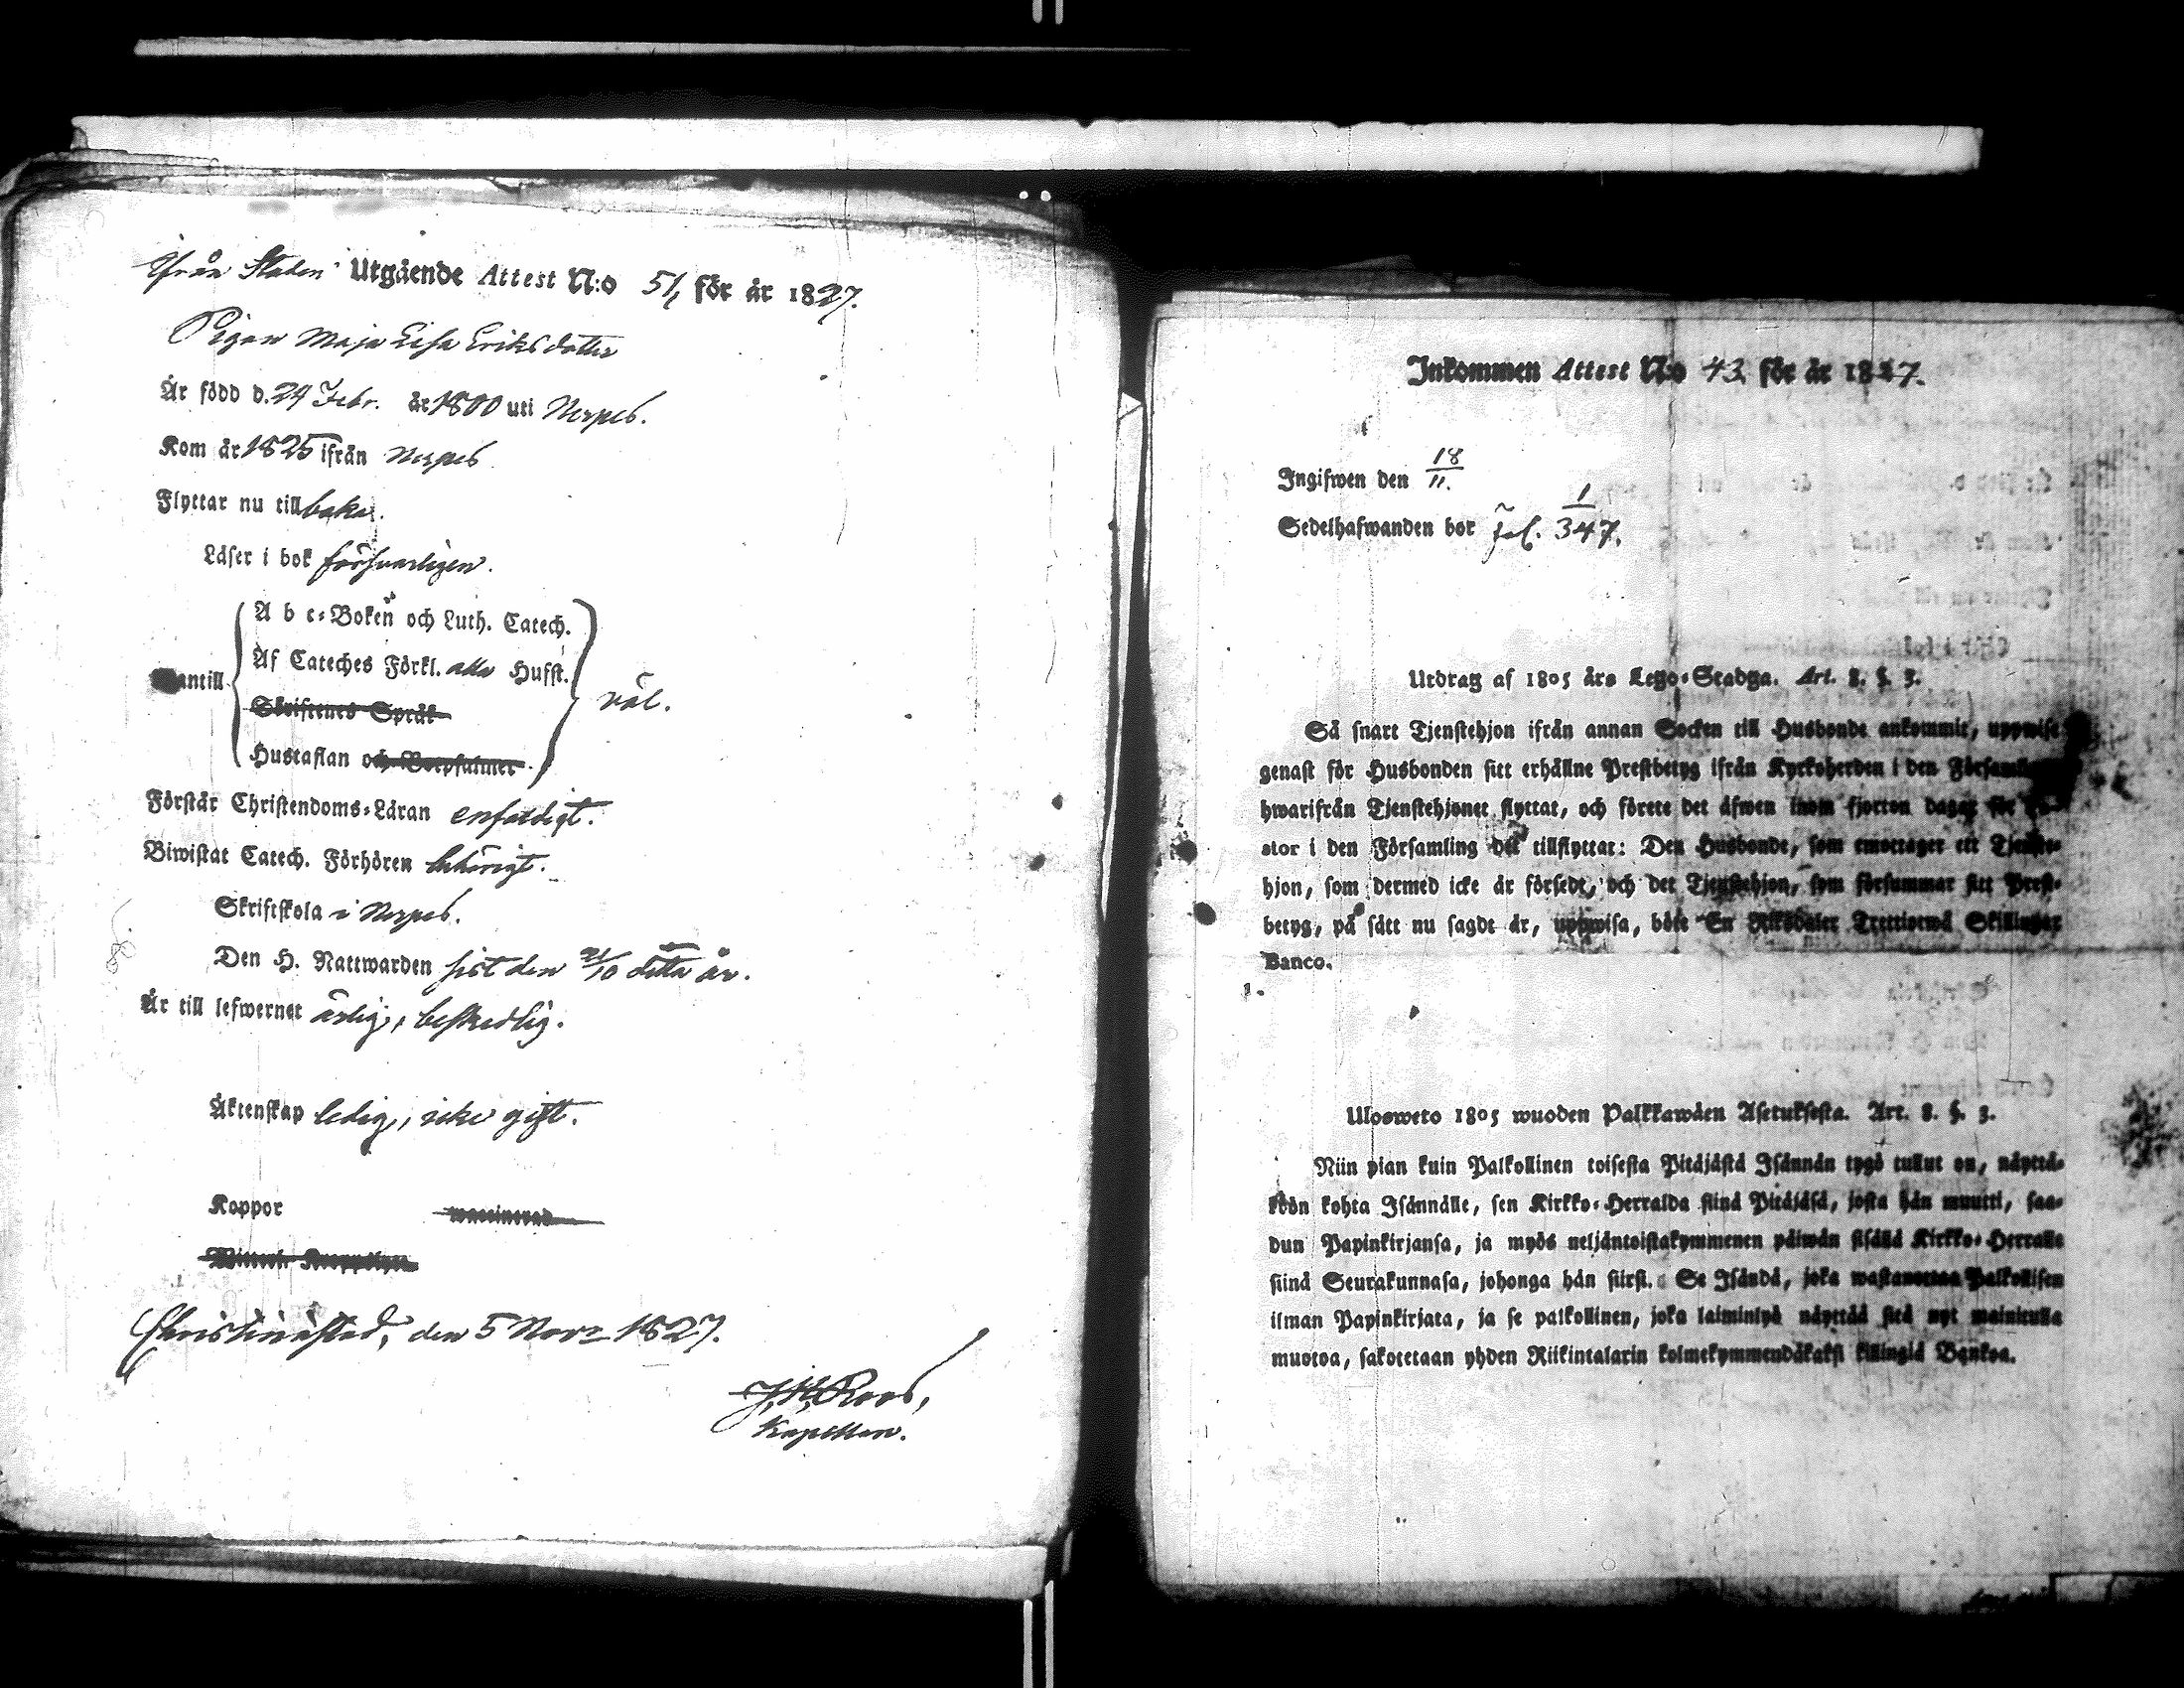 Ifrån Staden Utgående Attest N:o 51, för år 1827.
Pigan Maja Lisa Eriksdotter
Är född d. 24 Febr. år 1800 uti Nerpes.
Kom år 1825 ifrån Nerpes
Flyttar nu tillbaka.
Läser i bok försvarligen.
A b c-Boken och Luth. Catech.
Af Cateches Förkl. alla Husst.
antill
Skriftenes Språk
väl.
Hustaflan och Botpsalmer
Förstår Christendoms-Läran enfaldigt.
Biwistat Catech. Förhören behörigt.
Skriftskola i Nerpes.
Den H. Nattwarden sist den 21/10 detta år.
Är till lefwernet ärlig, beskedlig.
Äktenskap ledig, icke gift.
Koppor waccinerad
Christinestad, den 5 Nov. 1827.
J. H. Roos,
Kapellan.
Inkommen Attest N:o 43. för år 1827.
Ingifwen den 18/11.
Sedelhafwanden bor Fol. 1/347.
Utdrag af 1805 års Lego-Stadga. Art. 8. §. 3.
Så snart Tjenstehjon ifrån annan Socken till Husbonde ankommit, uppwise
genast för Husbonden sitt erhållne Prestbetyg ifrån Kyrkoherden i den
hwarifrån Tjenstehjonet flyttat, och förete det äfwen inom fjorton dagar för
stor i den Församling det tillflyttat: Den Husbonde, som emottager ett Tjenste-
hjon, som dermed icke är försedt, och det Tjenstehjon, som försummar sitt Prest-
betyg, på sätt nu sagdt är, uppwisa, böte En Riksdaler Trettiotwå Skillingar
Banco.
Ulosweto 1805 wuoden Palkkawäen Asetuksesta. Art. 8. §. 3.
Niin pian kuin Palkollinen toisesta Pitäjästä Isännän tygö tullut on, näyttä-
köön kohta Isännälle, sen Kirkko-Herralda siinä Pitäjäsä, josta hän muutti, saa-
dun Papinkirjansa, ja myös neljäntoistakymmenen päiwän sisällä Kirkko-Herralle
siinä Seurakunnasa, johonga hän siirsi. Se Isändä, joka wastanottaa Palkollisen
ilman Papinkirjata, ja se palkollinen, joka laiminlyö näyttää sitä nyt mainitulla
muotoa, sakotetaan yhden Riikintalarin kolmekymmendäkaksi killingiä Bankoa.